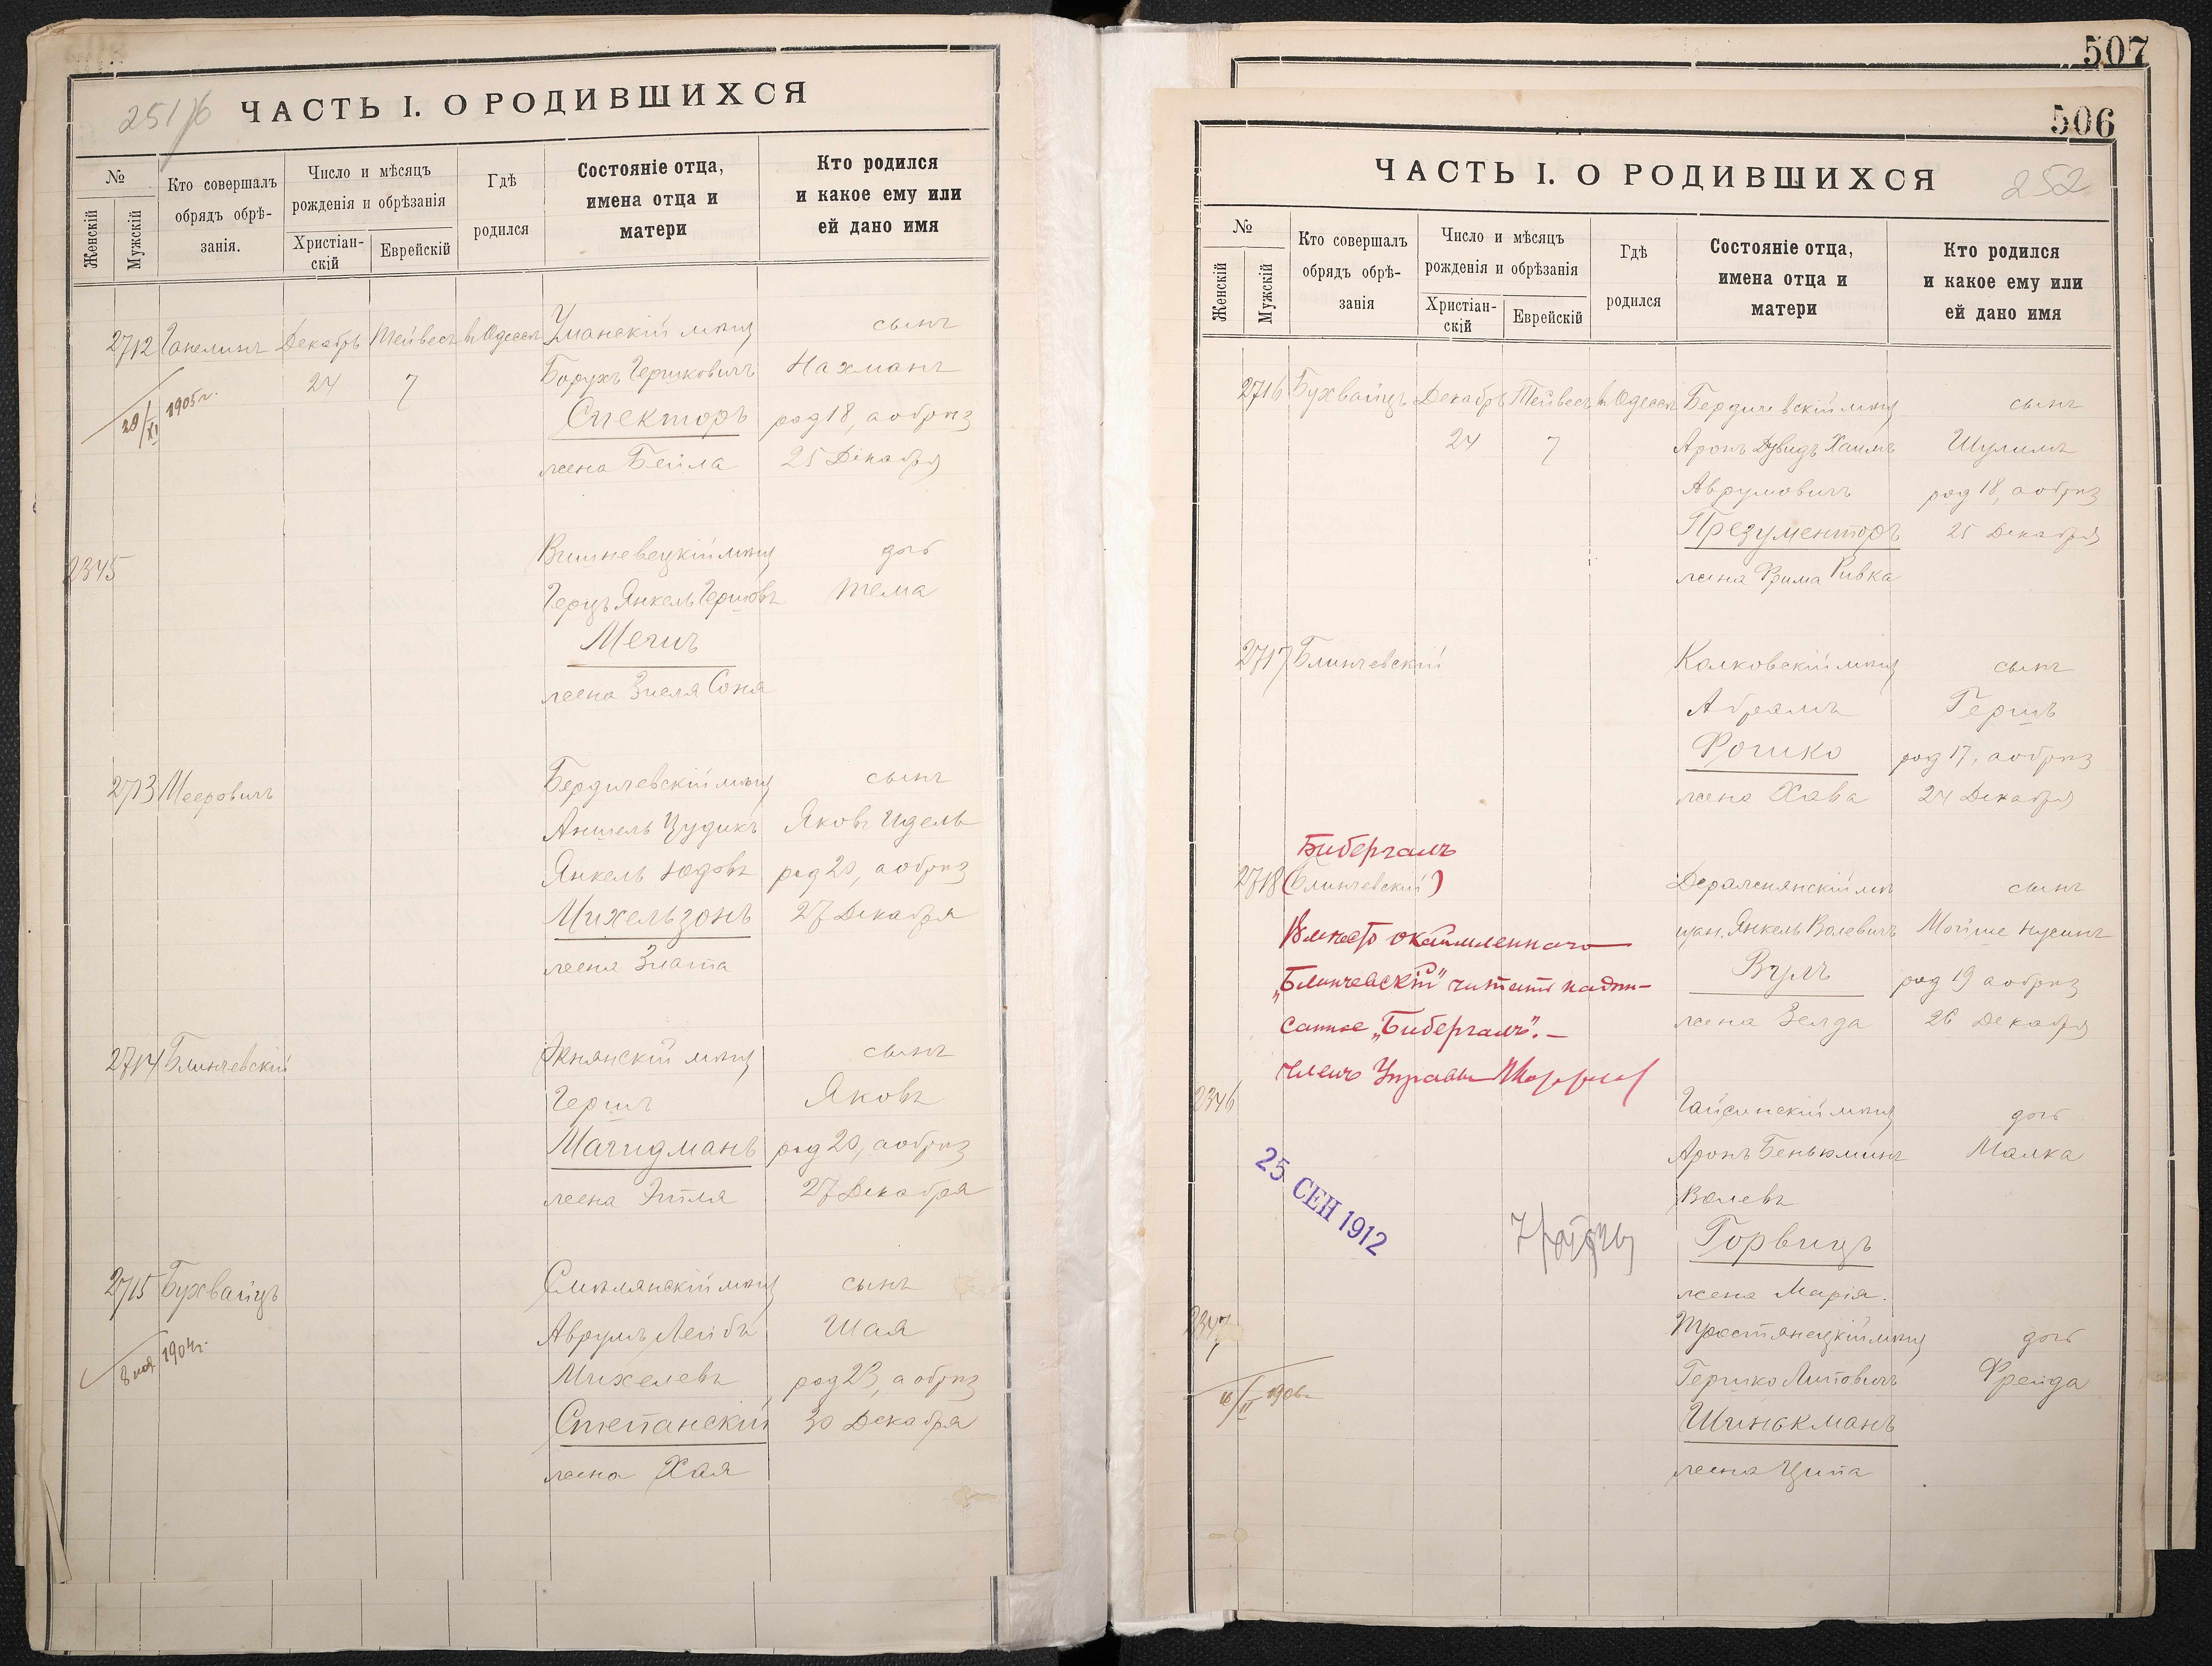 251/б
ЧАСТЬ I. О РОДИВШИХСЯ
№
Женскій
Мужскій
Кто совершалъ
обрядъ обрѣ-
занія.
Число и мѣсяцъ
рожденія и обрѣзанія
Христіан-
скій
Еврейскій
Гдѣ
родился
Состояніе отца,
имена отца и
матери
Кто родился
и какое ему или
ей дано имя
2712 Ганелинъ Декабрь Тейвесъ въ Одессѣ Уманскій мѣщ сынъ
24 7 Борухъ Гершковичъ Нахманъ
1905 г.
Спекторъ род 18, а обрѣз
жена Бейла 25 Декабря
2345 Вишневецкій мѣщ дочь
Герцъ Янкель Гершовъ Тема
Мечъ
жена Зисля Соня
2713 Мееровичъ Бердичевскій мѣщ сынъ
Аншель Цудикъ Яковъ Идель
Янкель Юдовъ род 20, а обрѣз
Михельзонъ 27 Декабря
жена Злата
2714 Блинчевскій мѣщ сынъ
Гершъ Яковъ
Магидманъ род 20, а обрѣз
жена Этля 27 Декабря
2715 Бухвайцъ Смѣлянскій мѣщ сынъ
Аврумъ Лейбъ Шая
8 ноя 1904 г.
Михелевъ род 23, а обрѣз
Степанскій 30 Декабря
жена Хая
507
506
ЧАСТЬ I. О РОДИВШИХСЯ
252
№
Женскій
Мужскій
Кто совершалъ
обрядъ обрѣ-
занія
Число и мѣсяцъ
рожденія и обрѣзанія
Христіан-
скій
Еврейскій
Гдѣ
родился
Состояніе отца,
имена отца и
матери
Кто родился
и какое ему или
ей дано имя
2716 Бухвайцъ Декабрь Тейвесъ въ Одессѣ Бердичевскій мѣщ сынъ
24 7 Аронъ Дувидъ Хаимъ Шулимъ
Аврумовичъ род 18, а обрѣз
Презументоръ 25 Декабря
жена Фрима Ривка
2717 Блинчевскій Колковскій мѣщ сынъ
Абрамъ Гершъ
Рошко род 17, а обрѣз
жена Хава 24 Декабря
Бибергалъ
2718 (Блинчевскій) Деражнянскій мѣ сынъ
щан. Янкель Волевичъ Мойше Нусинъ
Вмѣсто окаймленнаго
Вулъ род 19 а обрѣз
„Блинчевскій" читать надпи-
жена Зелда 26 Декабря
санное „Бибергалъ". —
Членъ Управы
2346 Гайсинскій мѣщ дочь
Аронъ Беньюминъ Малка
Волевъ
25 СЕН 1912
Горвицъ
жена Марія.
2347 Тростянецкій мѣщ дочь
Гершко Литовичъ Фрейда
Шинькманъ
жена Ципа